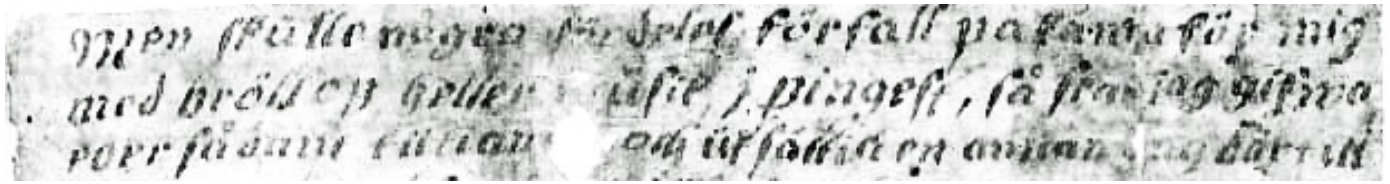 Men skulle någro förfall påkomma för mig
med bröllop heller j pingest, så skal jag gifwa
eder sådant och utsättia en annan dag där till